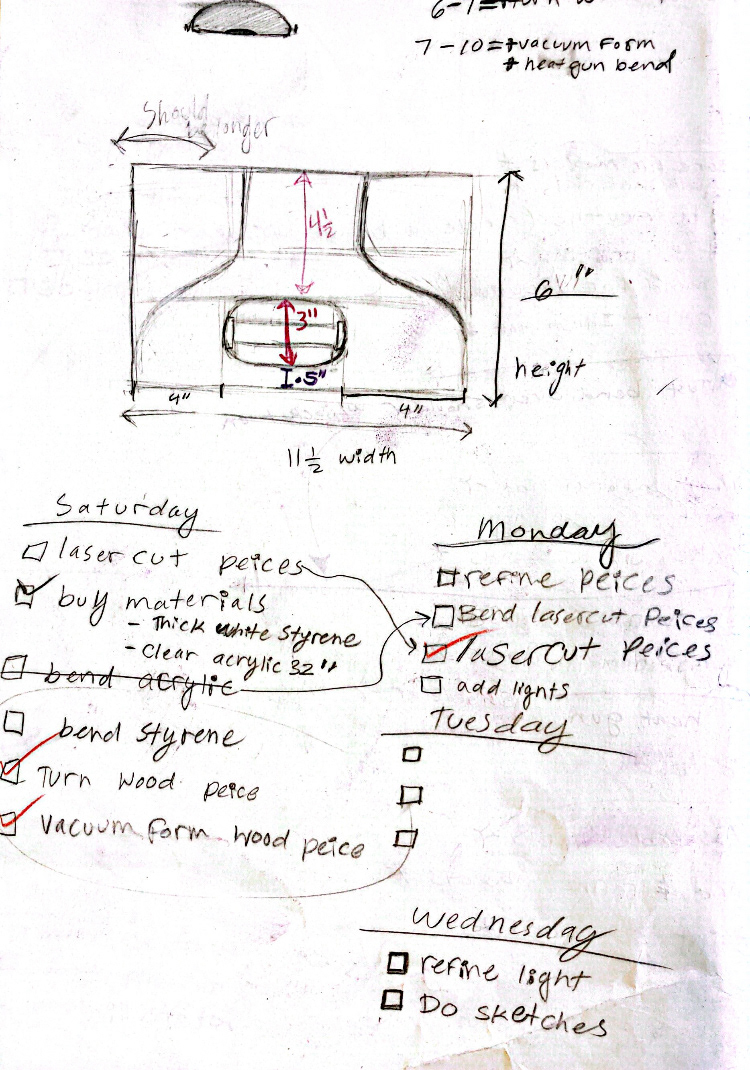 6-1 = turn w
7-10 = + vacuum form
+ heat gun bend
Should
be longer
4 1/2
3"
1.5"
6"
height
4"
4"
11 1/2 width
Saturday
laser cut peices
buy materials
- Thick white styrene
- Clear acrylic 32"
bend acrylic
bend styrene
Turn wood peice
Vacuum form wood peice
Monday
refine peices
Bend lasercut Peices
lasercut Peices
add lights
Tuesday
Wednesday
refine light
Do sketches